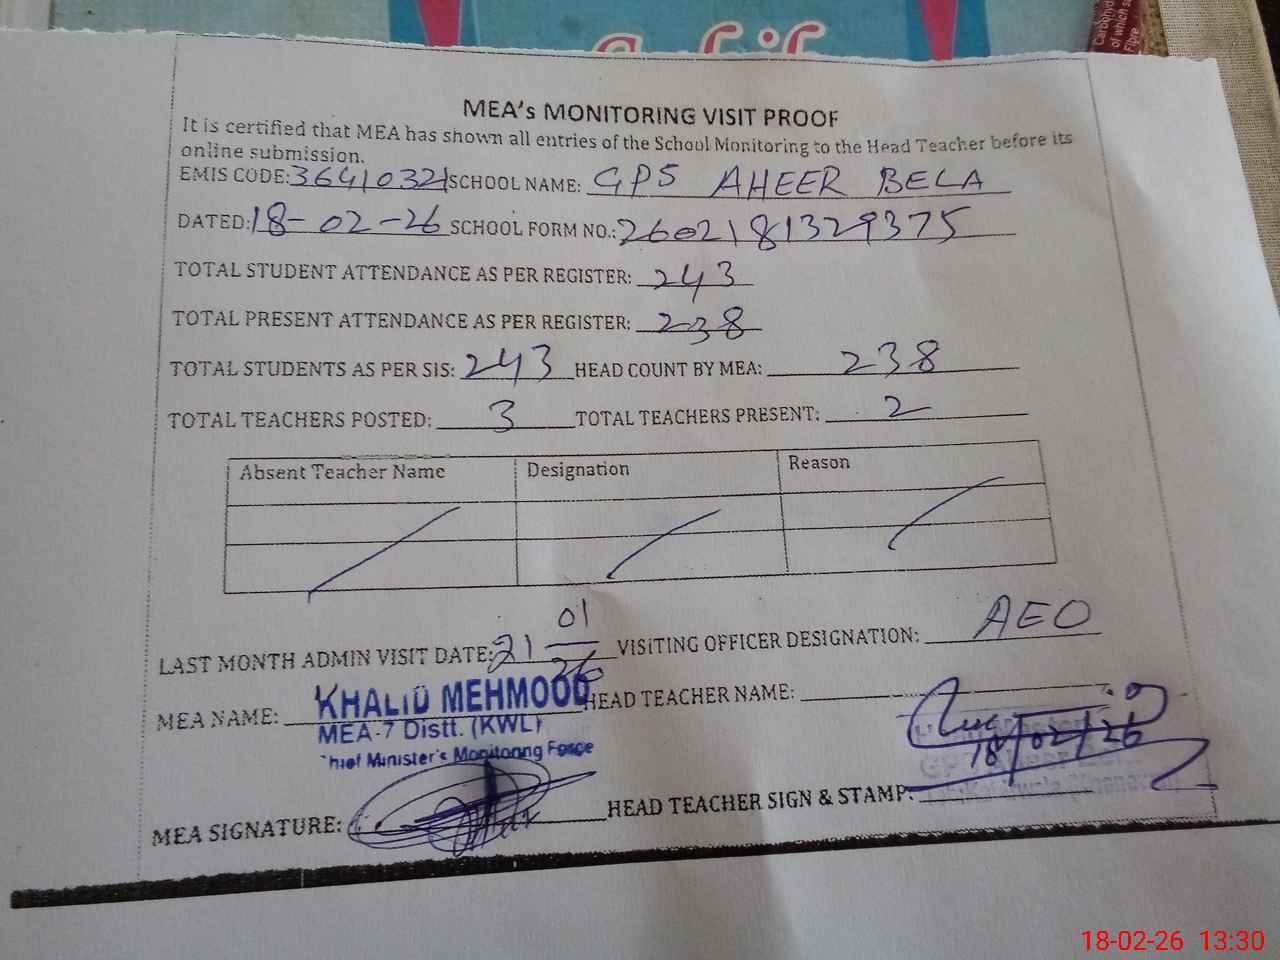 Carbohyd
of which su
Fibre
MEA's MONITORING VISIT PROOF
It is certified that MEA has shown all entries of the School Monitoring to the Head Teacher before its
online submission.
EMIS CODE: 36410321 SCHOOL NAME: GPS AHEER BELA
DATED: 18-02-26 SCHOOL FORM NO.: 2602181329375
TOTAL STUDENT ATTENDANCE AS PER REGISTER: 243
TOTAL PRESENT ATTENDANCE AS PER REGISTER: 238
TOTAL STUDENTS AS PER SIS: 243 HEAD COUNT BY MEA: 238
TOTAL TEACHERS POSTED: 3 TOTAL TEACHERS PRESENT: 2
Absent Teacher Name Designation Reason
LAST MONTH ADMIN VISIT DATE: 21 01 26 VISITING OFFICER DESIGNATION: AEO
MEA NAME: KHALID MEHMOOD HEAD TEACHER NAME:
MEA-7 Distt. (KWL)
Chief Minister's Monitoring Force
18/02/26
MEA SIGNATURE: HEAD TEACHER SIGN & STAMP:
18-02-26 13:30